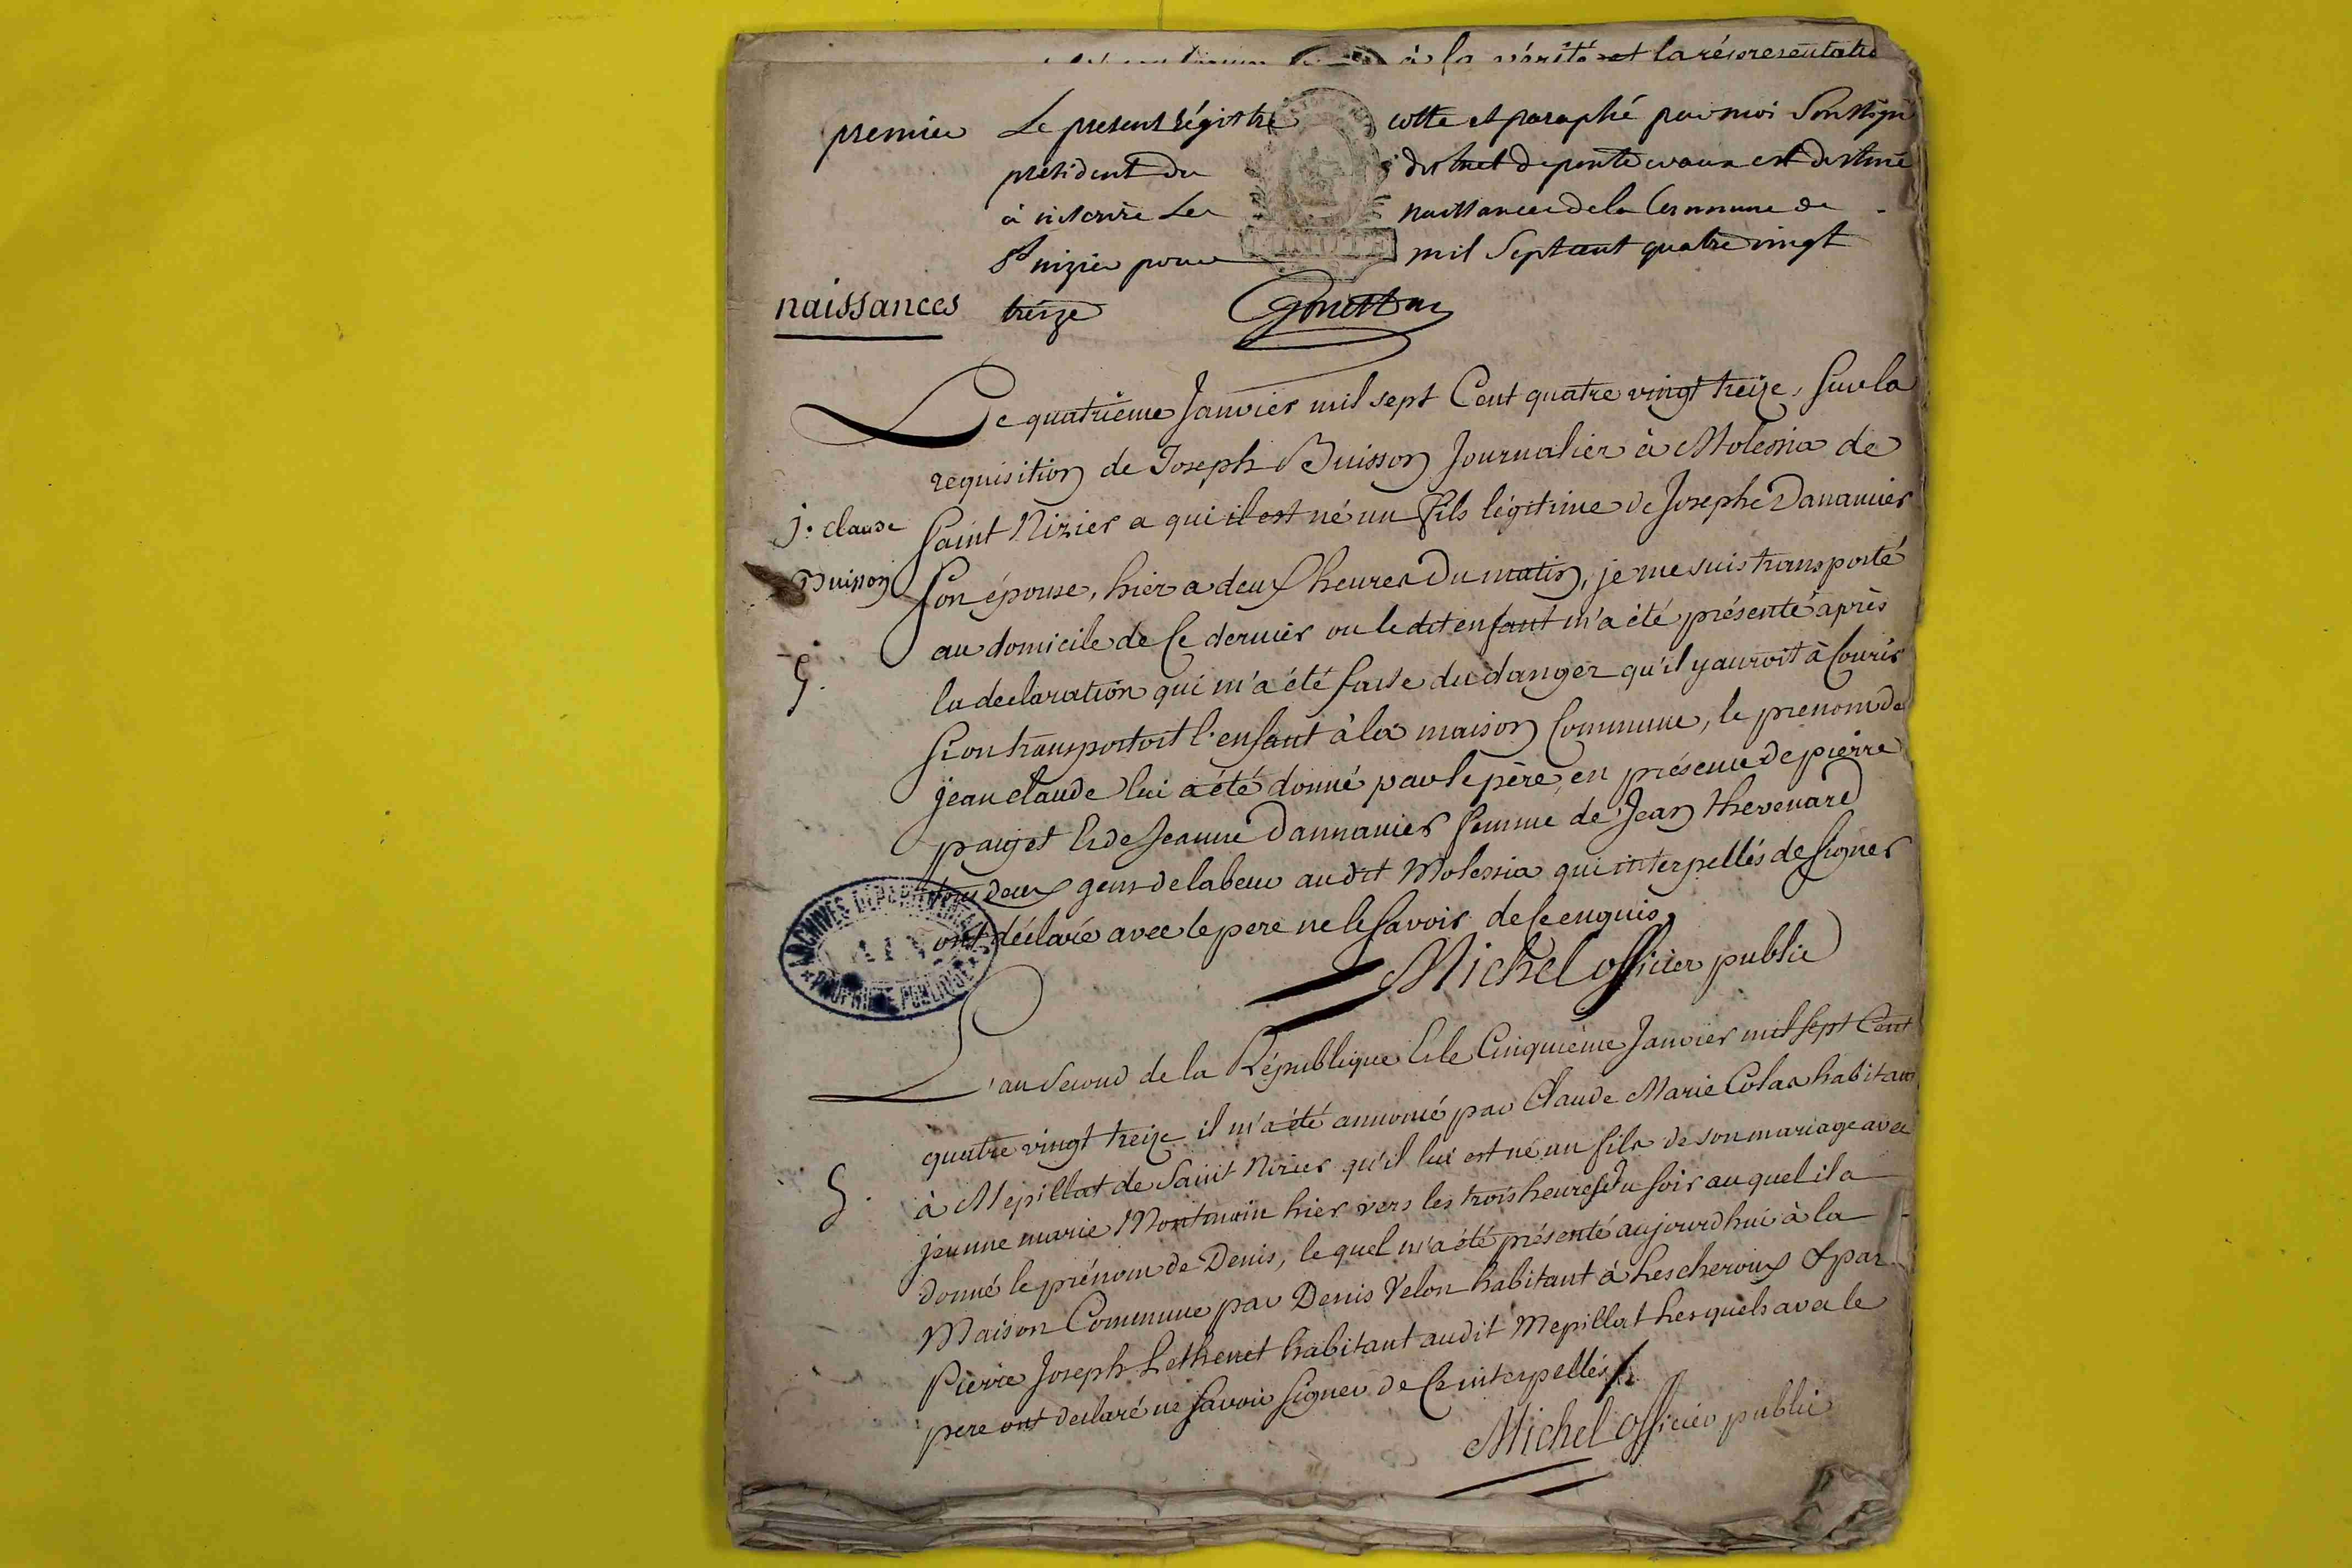 à la vérité et la réprésentatio
premier Le present régistre cotté et paraphé par moi soussigné
président du district de pontdevaux est destiné
à inscrire Les naissances de la Commune de
St nizier pour mil sept cent quatre vingt
naissances treize
MINUTE
Le quatrième Janvier mil sept Cent quatre vingt treize, sur la
requisition de Joseph Buisson Journalier à Molessia de
J. claude Saint Nizier a qui il est né un fils légitime de Josephe Dananier
Buisson son épouse, hier a deux heures du matin, je me suis transporté
au domicile de Ce dernier ou le dit enfant m'a été présenté après
g. la declaration qui m'a été faite du danger qu'il y auroit à Courir
si on transportoit l'enfant à la maison Commune, le prenom de
jean claude lui a été donné par le père, en présence de pierre
pauget & de Jeanne Dannanier femme de Jean thevenard
tous deux gens de labeur au dit Molessia qui interpellés de signer
ont déclaré avec le pere ne le savoir de Ce enquis.
ARCHIVES DEPARTEMENTALES
AIN
PROPRIÉTÉ PUBLIQUE
Michel officier public
L'an second de la République & le Cinquième Janvier mil sept Cent
quatre vingt treize il m'a été annoncé par Claude Marie Colas habitant
g. à Mépillat de Saint Nizier qu'il lui est né un fils de son mariage avec
jeanne marie Montmain hier vers les trois heures du soir au quel il a
donné le prénom de Denis, le quel m'a été présenté aujourd'hui à la
Maison Commune par Denis Velon habitant à Lescheroux & par
Pierre Joseph Lethenet habitant audit Mepillat Lesquels avec le
pere ont declaré ne savoir signer de Ce interpellés
Michel Officier public